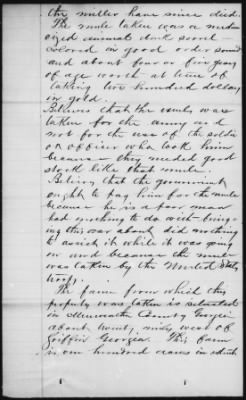 the miller have since died.
The mule taken was a medium
sized animal dark sorrel
colored in good order sound
and about four or five years
of age worth at time of
taking two hundred dollars
in gold.
Believes that the mule was
taken for the army and
not for the use of the soldier
or officer who took him
because they needed good
stock like that mule.
Believes that the government
ought to pay him for the mule
because he is a poor man
had nothing to do with bring-
ing this war about did nothing
to assist it while it was going
on and because the mule
was taken by the United States
troops.
The farm from which this
property was taken is situated
in Meriwether County Georgia
about twenty miles west of
Griffin Georgia. This farm
is one hundred acres in which